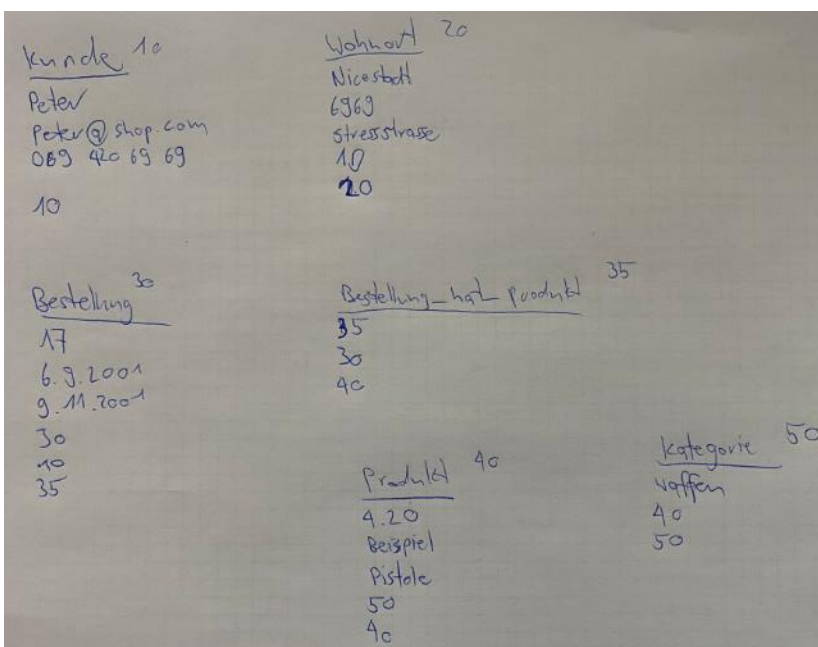 Kunde 10
Peter
Peter@shop.com
089 420 69 69
10
Wohnort 20
Nicestadt
6969
stressstrasse
10
20
Bestellung 30
17
6.9.2001
9.11.2001
30
10
35
Bestellung_hat_produkt 35
35
30
40
Produkt 40
4.20
Beispiel
Pistole
50
40
Kategorie 50
Waffen
40
50